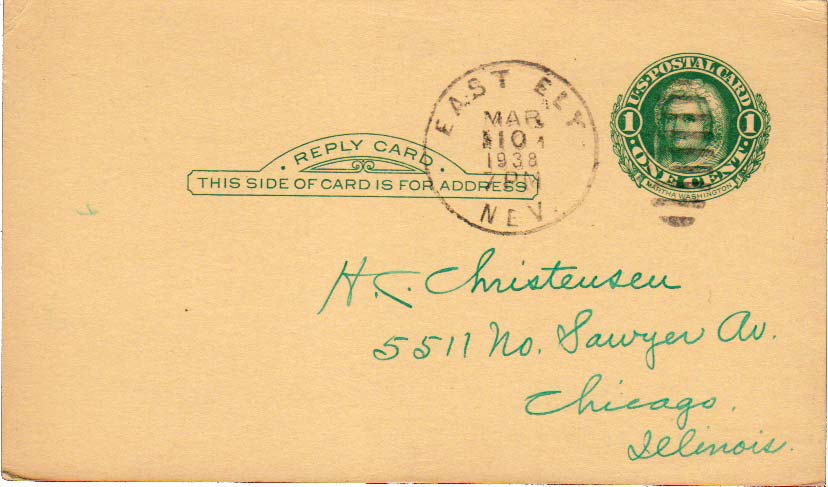 U·S·POSTAL CARD
1 1
·ONE CENT·
MARTHA WASHINGTON
EAST ELY
MAR
10
1938
7 PM
NEV.
· REPLY CARD ·
THIS SIDE OF CARD IS FOR ADDRESS
H. C. Christensen
5511 No. Sawyer Av.
Chicago.
Illinois.